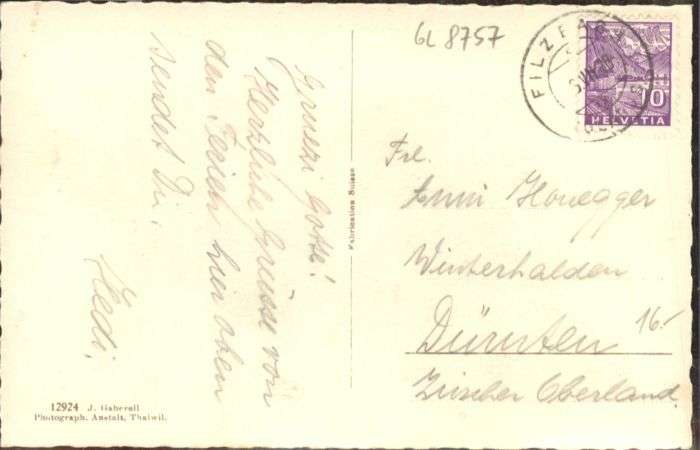 GL 8757
FILZBACH
10
HELVETIA
Gruezi Gotte!
Herzliche Grüsse von
den Ferien hier oben
sendet Dir,
Hedi.
Fabrication Suisse
Frl.
Anni Honegger
Winterhalden
Dürnten
16.-
Zürcher Oberland.
12924 J. Gaberell
Photograph. Anstalt, Thalwil.